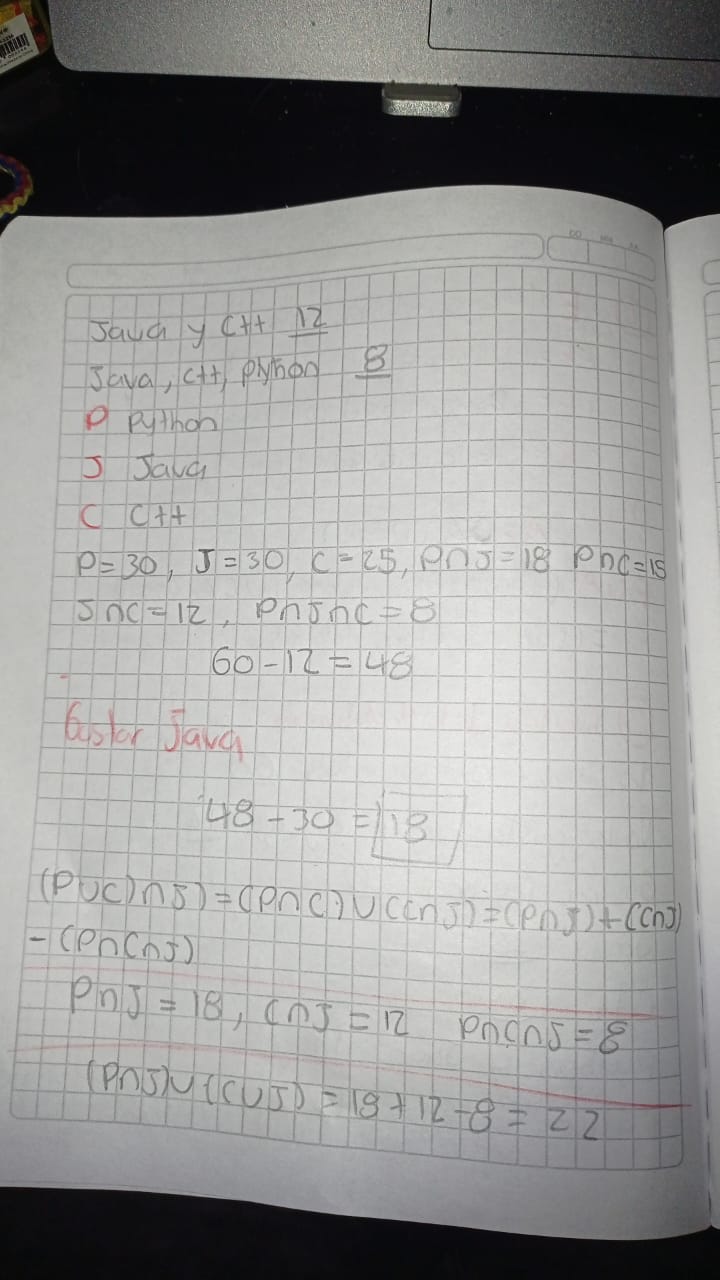 Java y C++ 12
Java, C++, Plython 8
P Python
J Java
C C++
P=30, J=30, C=25, P∩J=18 P∩C=15
J∩C=12, P∩J∩C=8
60-12=48
Gustar Java
48-30=18
(P∪C)∩J)=(P∩C)∪(C∩J)=(P∩J)+(C∩J)
-(P∩C∩J)
P∩J=18, C∩J=12 P∩C∩J=8
(P∩J)∪(C∪J)=18+12-8=22